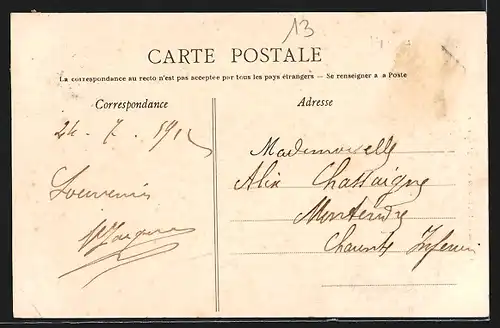 13
CARTE POSTALE
La correspondance au recto n'est pas acceptée par tous les pays étrangers — Se renseigner à la Poste
Correspondance
Adresse
24 - 7 -
Mademoiselle
Alix Chassaigne
Souvenir
Montendre
Charente Inférieu